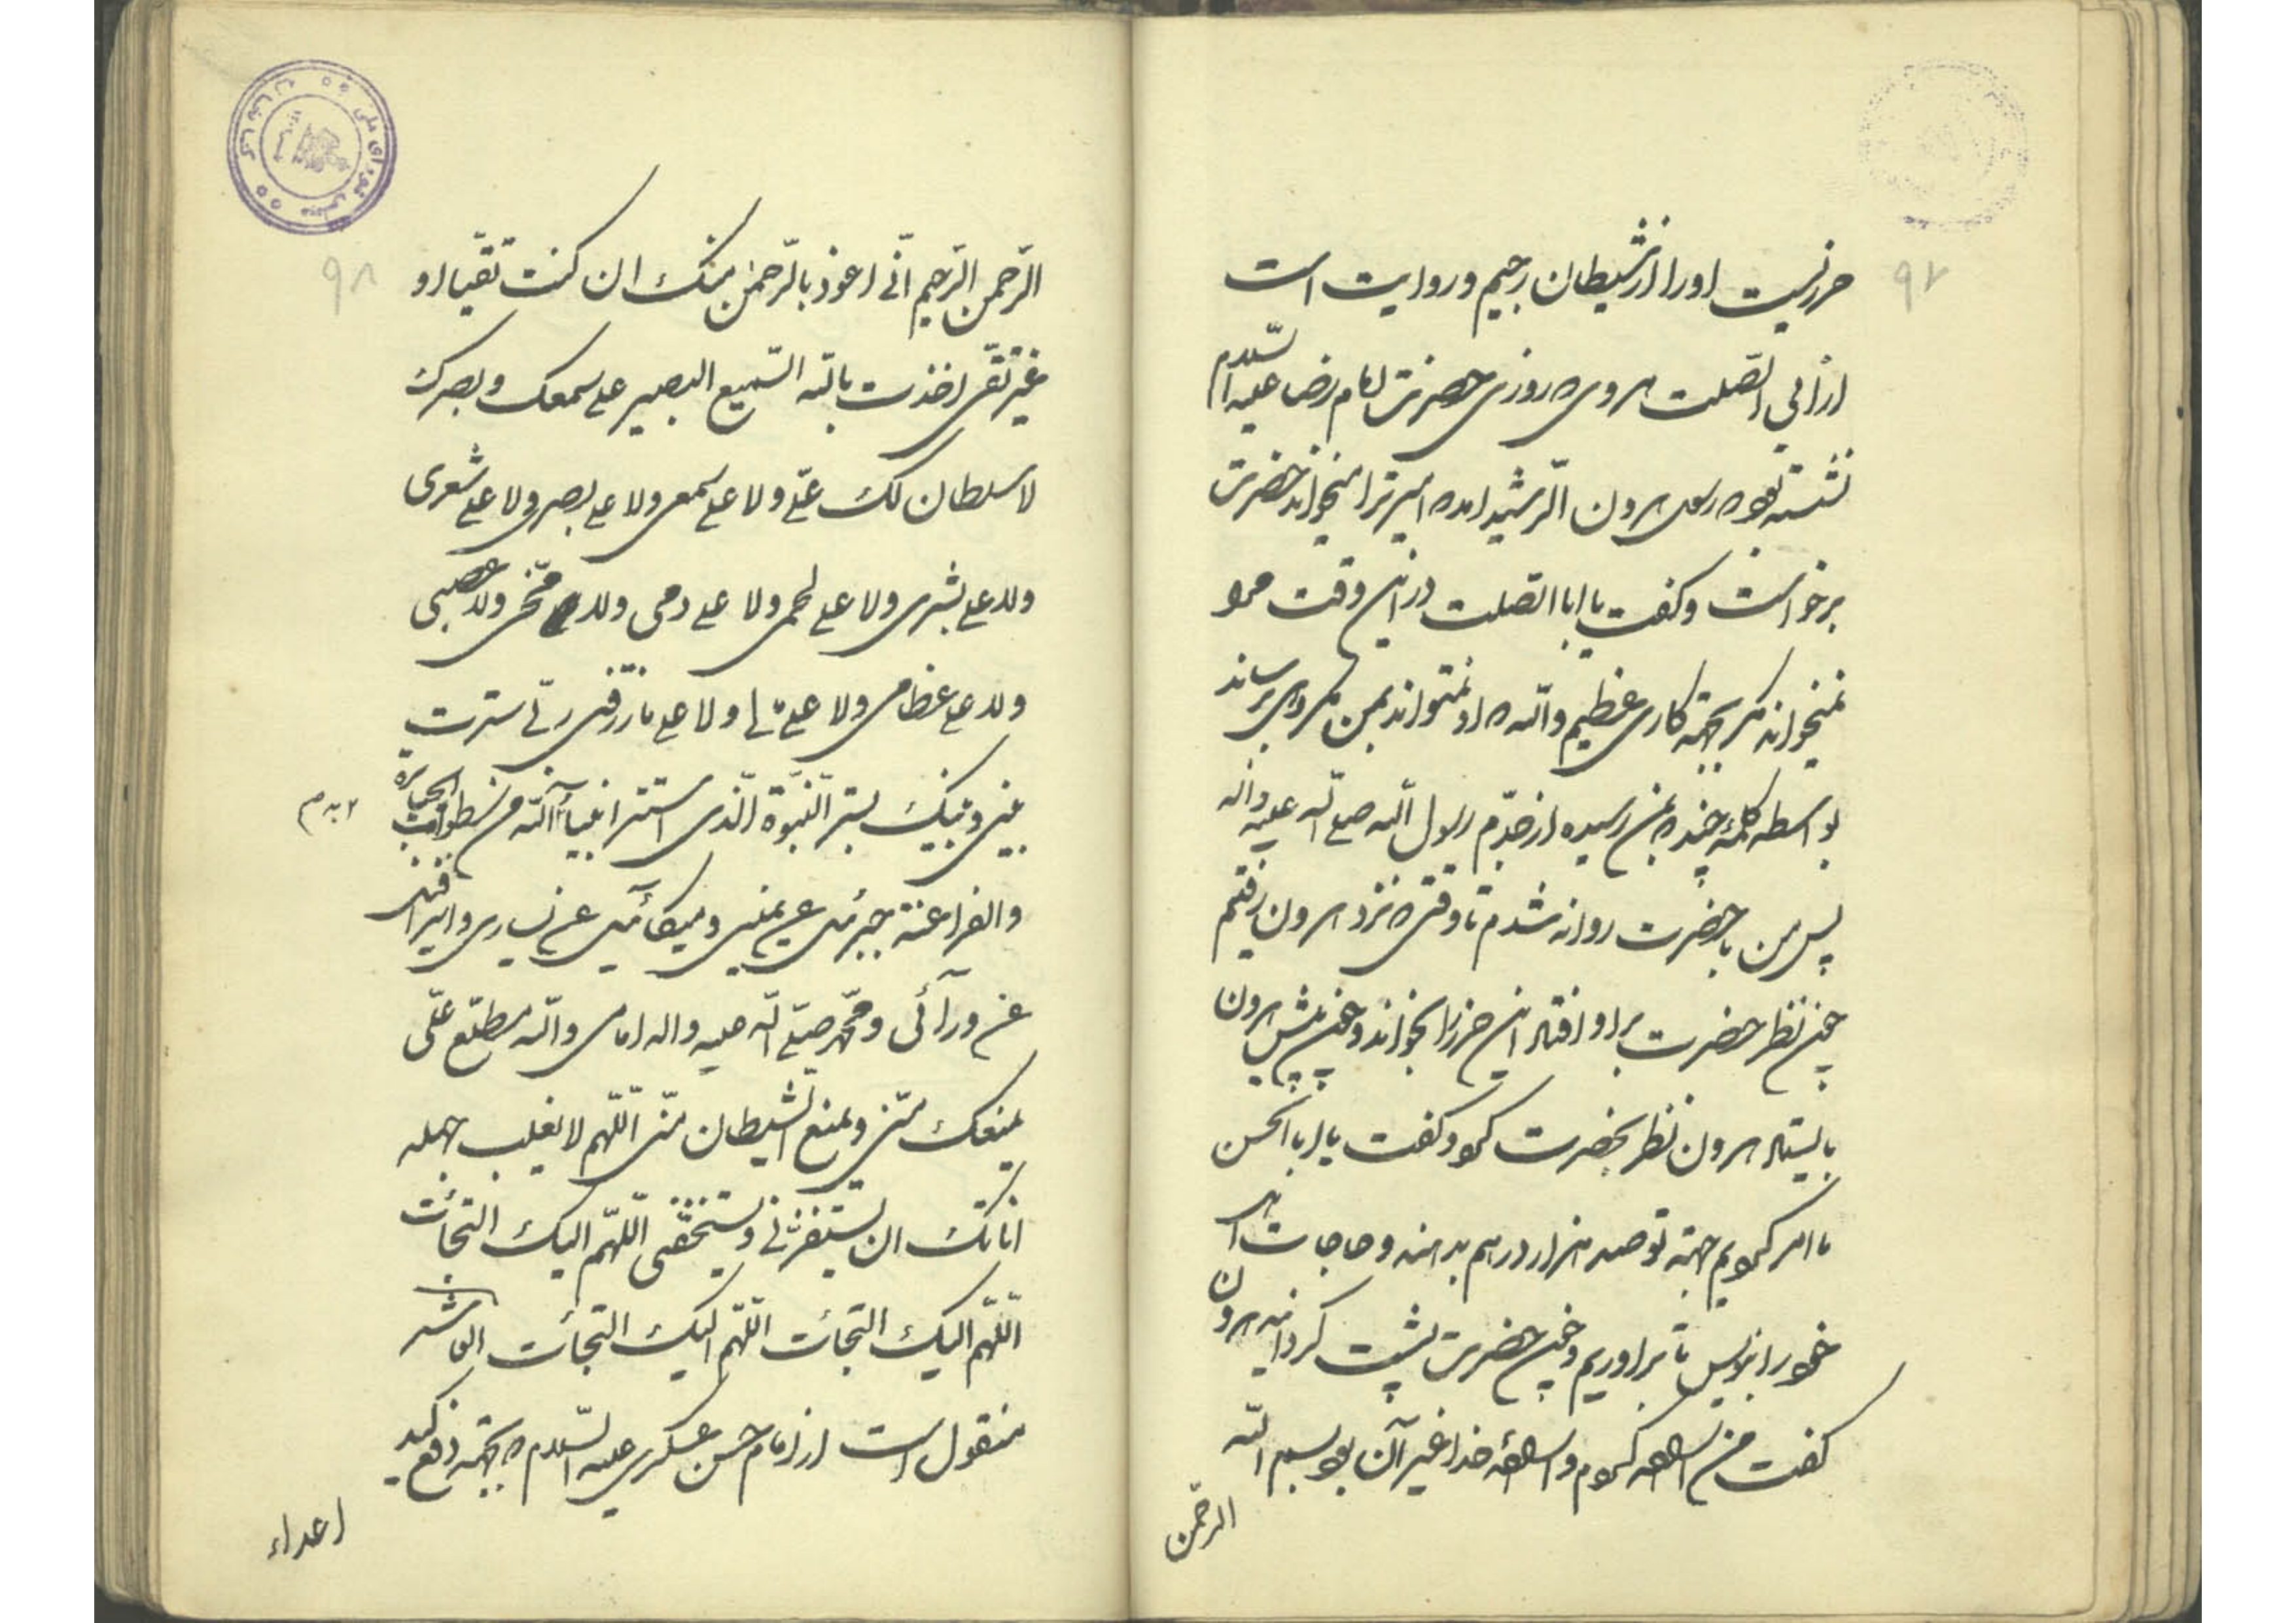 ۹۷
حرزیست او را از شیطان رجیم و روایت است
از ابی الصّلت هروی که روزی حضرت امام رضا علیه السّلام
نشسته بود که رسول هرون الرّشید امده امیر ترا میخواند حضرت
برخواست و کفت یا ابا الصّلت در این وقت مرا
نمیخواند مکر بجهة کاری عظیم واللّه که او نمیتواند بمن مکروهی برساند
بواسطه کلمهٔ چند که بمن رسیده از جدّم رسول اللّه صلی اللّه علیه واله
پس من با حضرت روانه شدم تا وقتی که نزد هرون رفتیم
چون نظر حضرت براو افتاد این حرز را بخواند و چون پیش هرون
بایستاد هرون نظر بحضرت کرد و کفت یا ابا الحسن
ما امر کردیم جهة تو صد هزار درهم بدهند و حاجات اهل
خود را بنویس تا براوریم و چون حضرت پشت کردانید هرون
کفت من اراده کردم و ارادهٔ خدا غیر آن بود بسم اللّه
الرحمن
۹۸
الرّحمن الرّحیم انّی اعوذ بالرّحمن منک ان کنت تقیّا او
غیر تقی اخذت باللّه السّمیع البصیر علی سمعک و بصرک
لا سلطان لک علیّ ولا علی سمعی ولا علی بصری ولا علی شعری
ولا علی بشری ولا علی لحمی ولا علی دمی ولا مخّی ولا عصبی
ولا علی عظامی ولا علی مالی ولا علی ما رزقنی ربّی سترت
بینی و بینک بستر النّبوّة الّذی استتر انبیآء اللّه من سطوات الجبابرة
والفراعنة جبرئیل عن یمینی و میکآئیل عن یساری و اسرافیل
عن ورآئی و محمّد صلّی اللّه علیه واله امامی واللّه مطلّع علیّ
یمنعک منّی و یمنع الشّیطان منّی اللّهم لا یغلب جهله
اناتک ان یستفزّنی و یستخفّنی اللّهم الیک التجأت
اللّهم الیک التجأت اللّهم الیک التجأت العاشر
منقول است از امام حسن عسکری علیه السّلام که بجهة دفع کید
اعداء